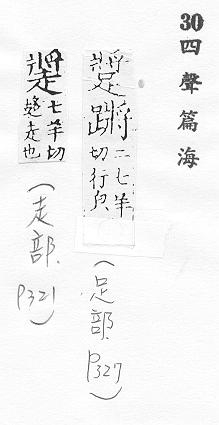 30 四聲篇海
蹡 二七羊
切行皃
(足部 P327)
七羊切
走也
(走部 P321)